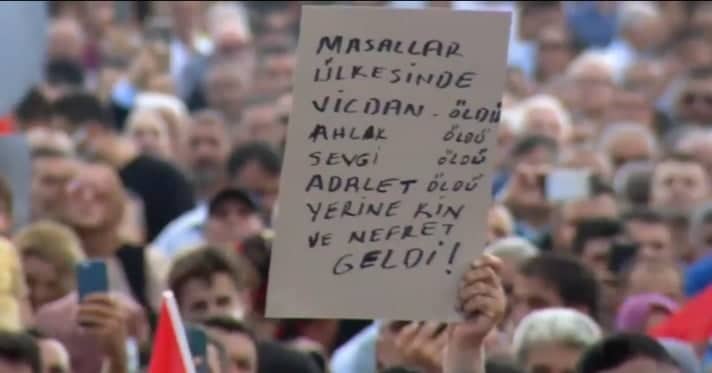 MASALLAR
ÜLKESİNDE
VİCDAN - ÖLDÜ
AHLAK ÖLDÜ
SEVGİ ÖLDÜ
ADALET ÖLDÜ
YERİNE KİN
VE NEFRET
GELDİ!